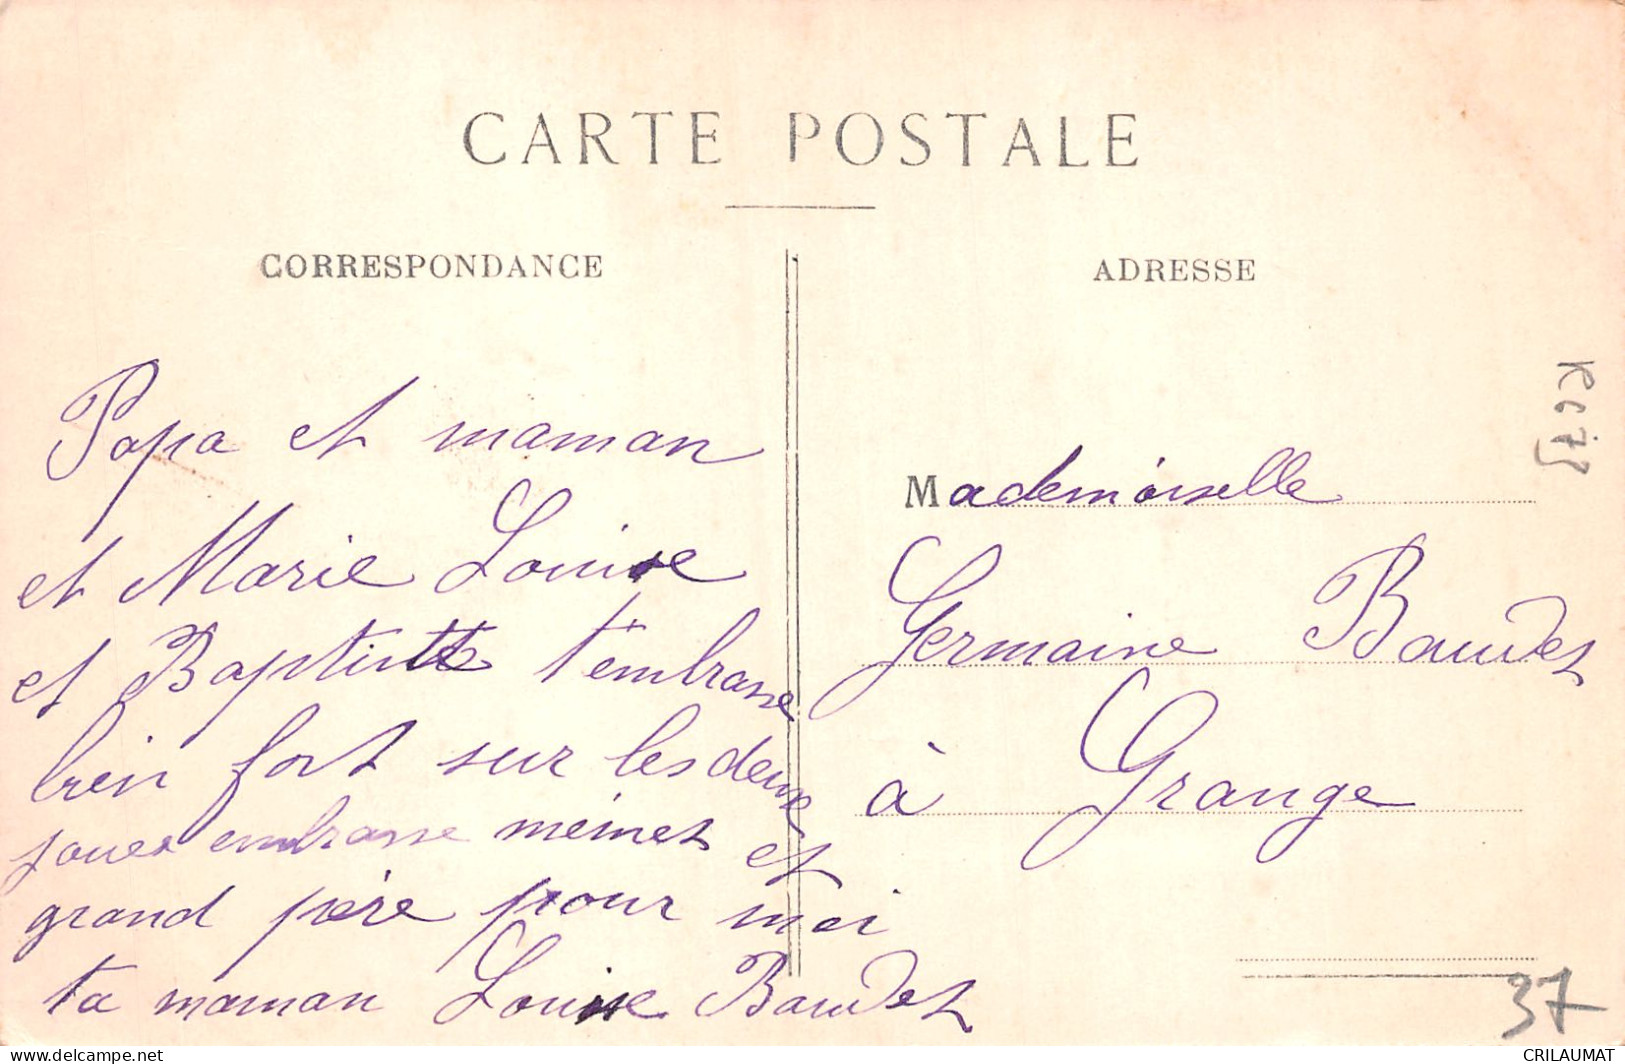 CARTE POSTALE
CORRESPONDANCE
Papa et maman
et Marie Louise
et Baptiste t'embrasse
bien fort sur les deux
joues embrasse mémet et
grand père pour moi
ta maman Louise Baudet
ADRESSE
Mademoiselle
Germaine Baudet
à Grange
37
CRILAUMAT